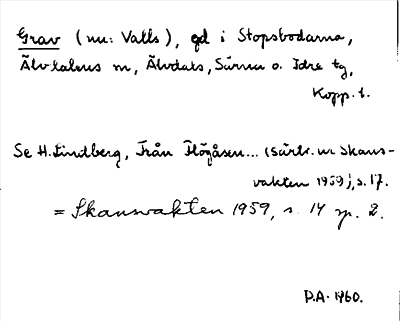 Grav (nu: Valls), gd i Stopsbodarna,
Älvdalens sn, Älvdals, Särna o. Idre tg,
Kopp. l.
Se H. Lindberg, Från Högåsen... (särtr. ur Skans-
vakten 1959), s. 17.
= Skansvakten 1959, s. 14 sp. 2.
D.A. 1960.